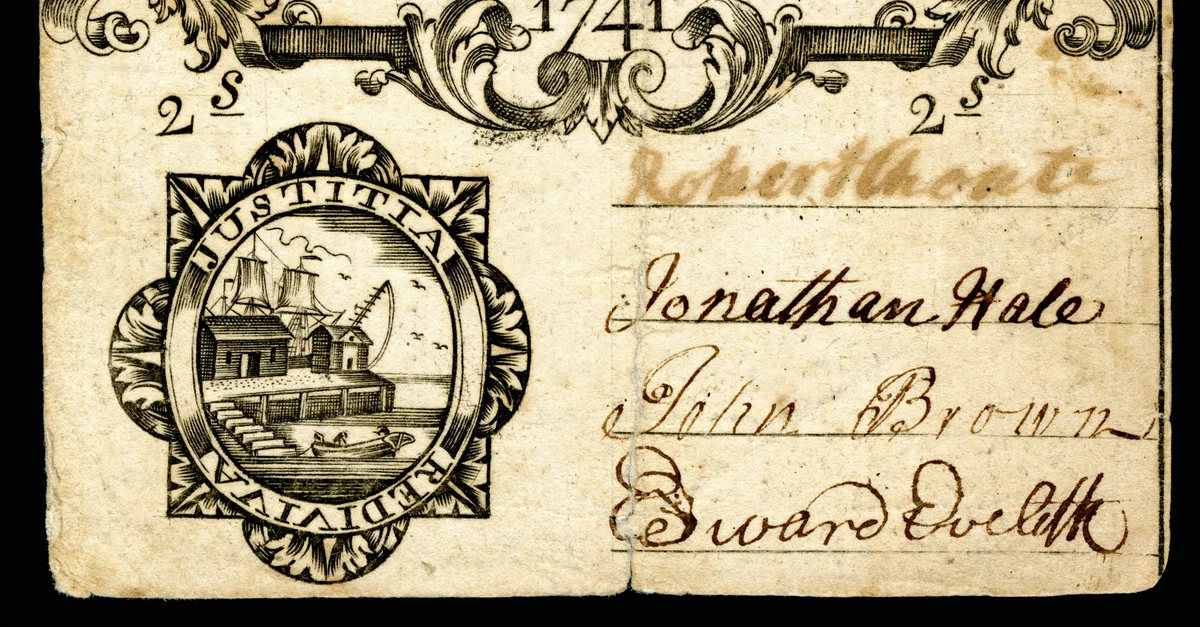 1741
2s 2s
JUSTITIA
REDIVIVA
Robert Choate
Jonathan Hale
John Brown
Edward Eveleth